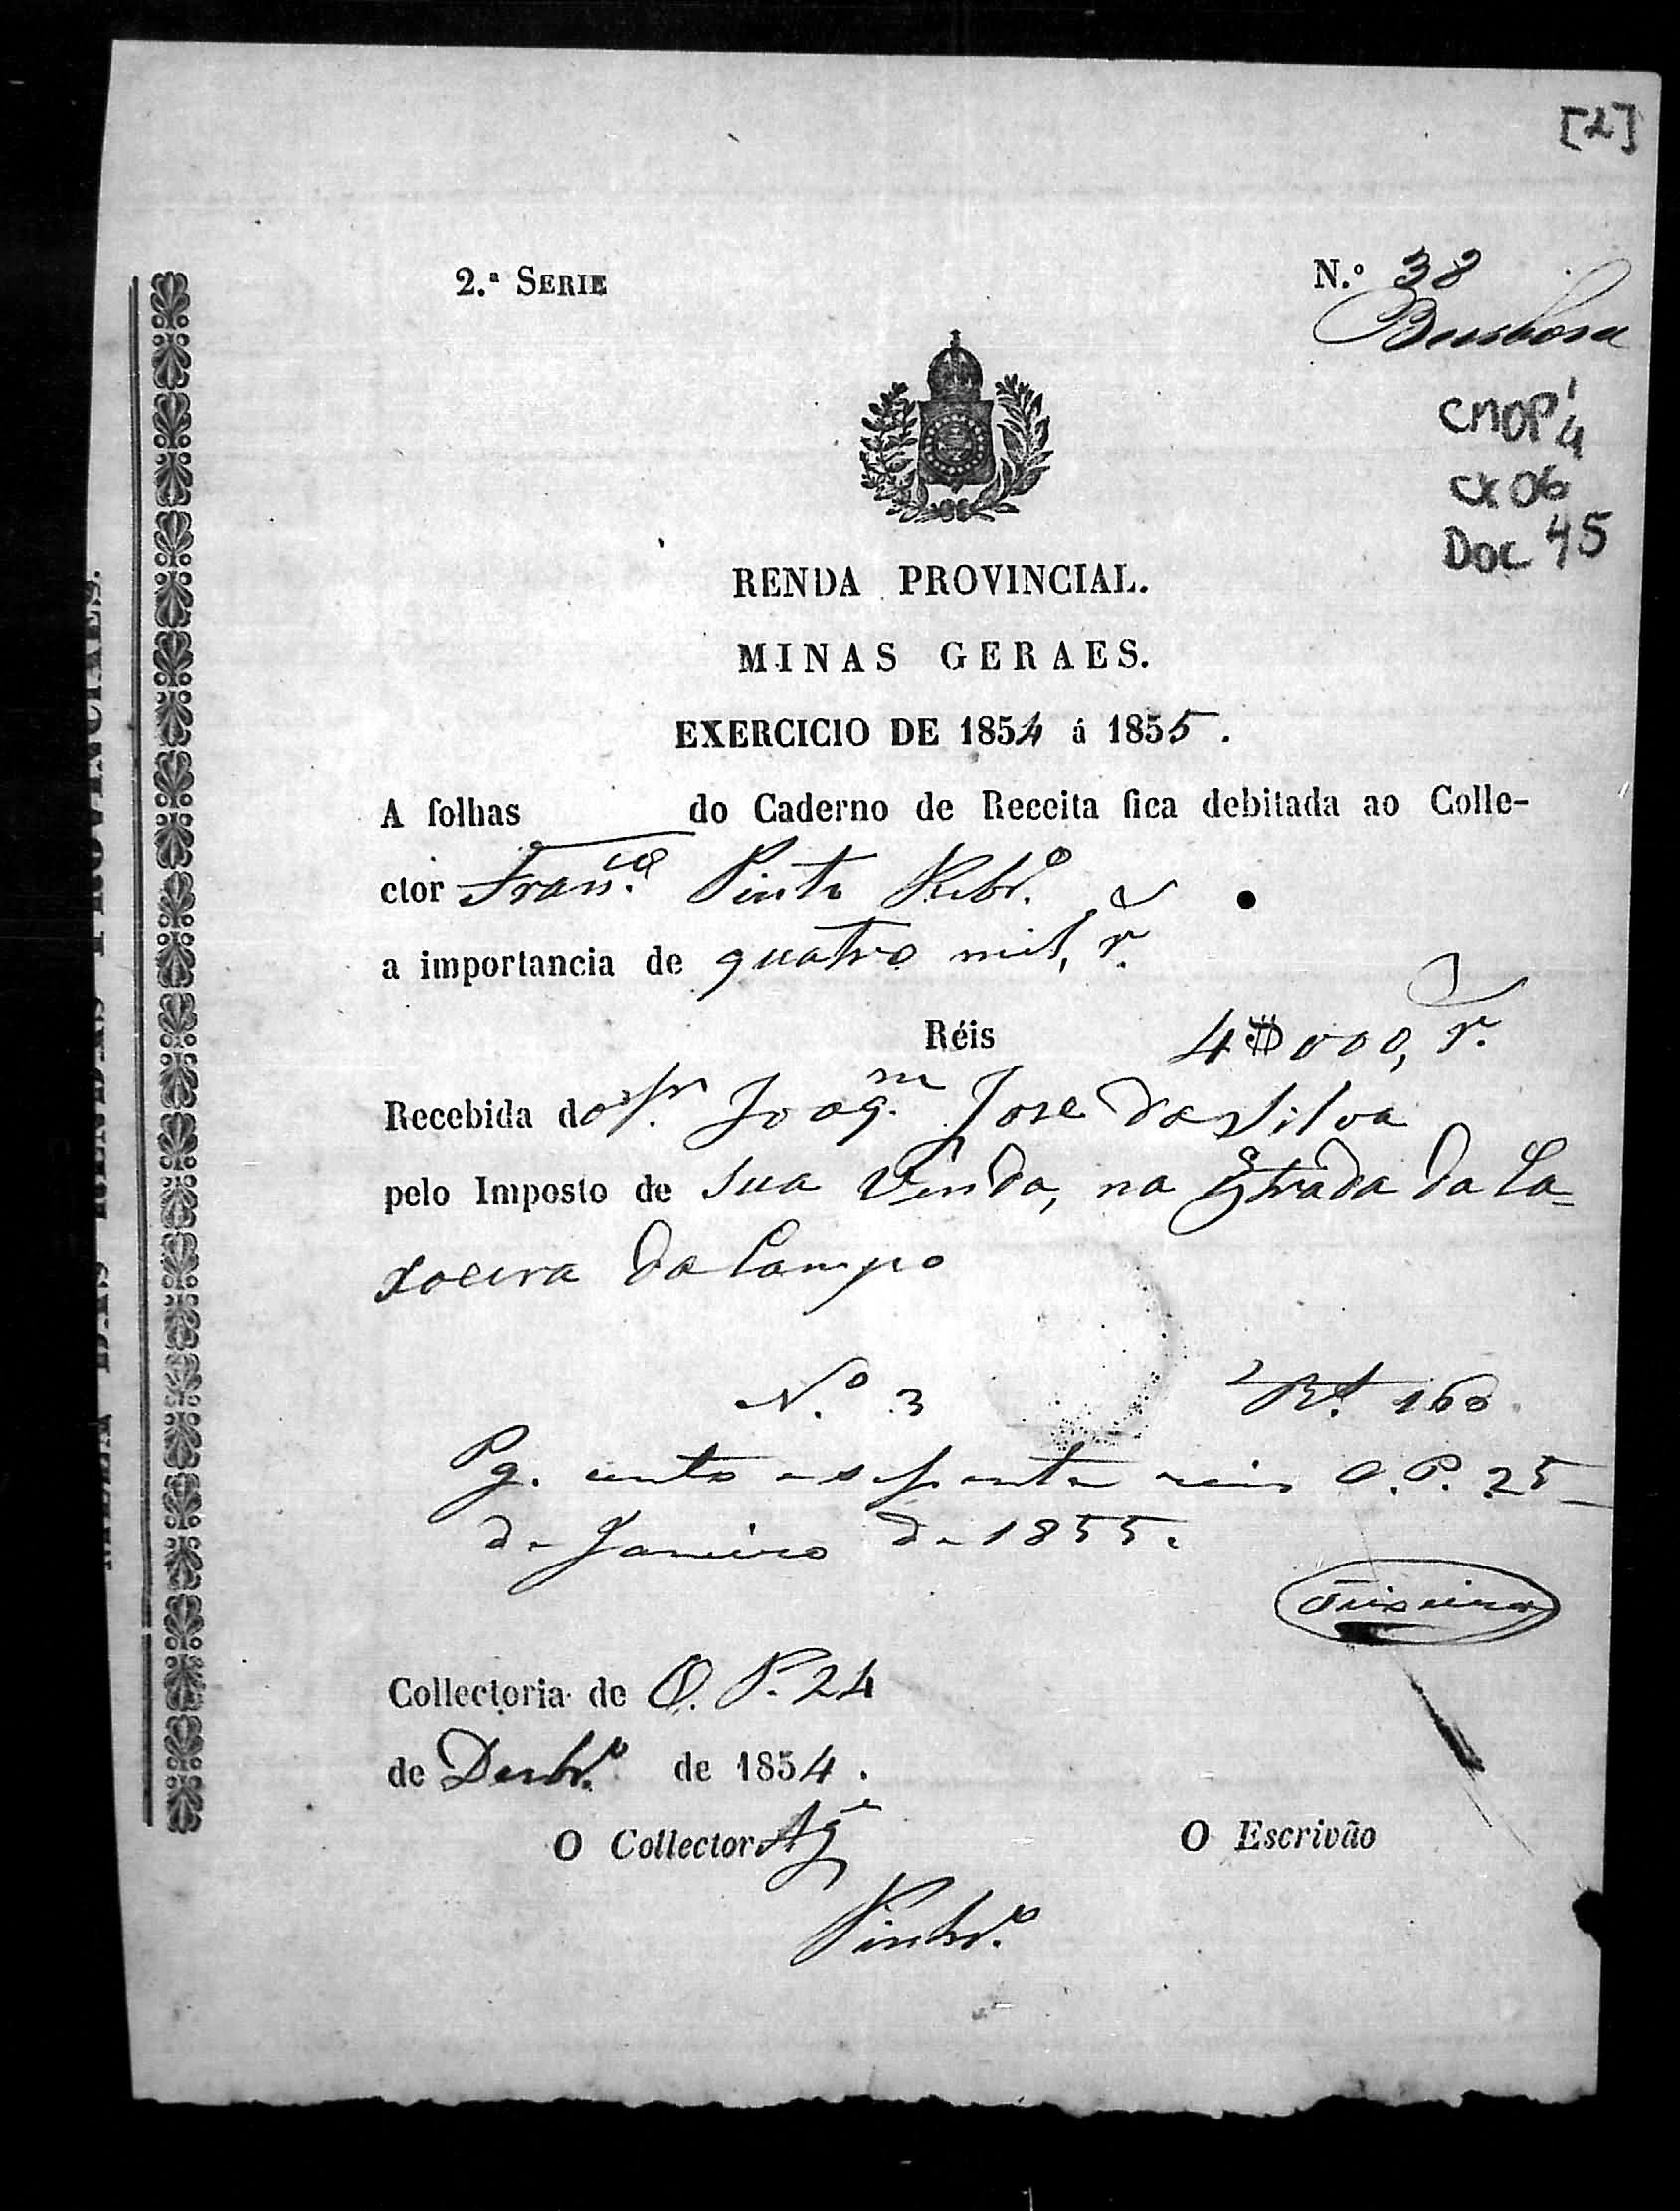 [2]
2.ª SERIE
N.º 38
Barbosa
CMOP 1/4
cx 06
Doc 45
RENDA PROVINCIAL.
MINAS GERAES.
EXERCICIO DE 1854 á 1855.
A folhas do Caderno de Receita fica debitada ao Colle-
ctor Fran.co Pinto Ribr.o
a importancia de quatro mil, r.
Réis 4$000, r.
Recebida do Sr. Joaq.m Jose da Silva
pelo Imposto de sua Venda, na Estrada da Ca=
xoeira do Campo
N.º 3 Rs. 160
Pg. cento e sessenta reis O. P. 25
de Janeiro de 1855.
Teixeira
Collectoria de O. P. 24
de Dezbr.o de 1854.
O Collector Ag.e
O Escrivão